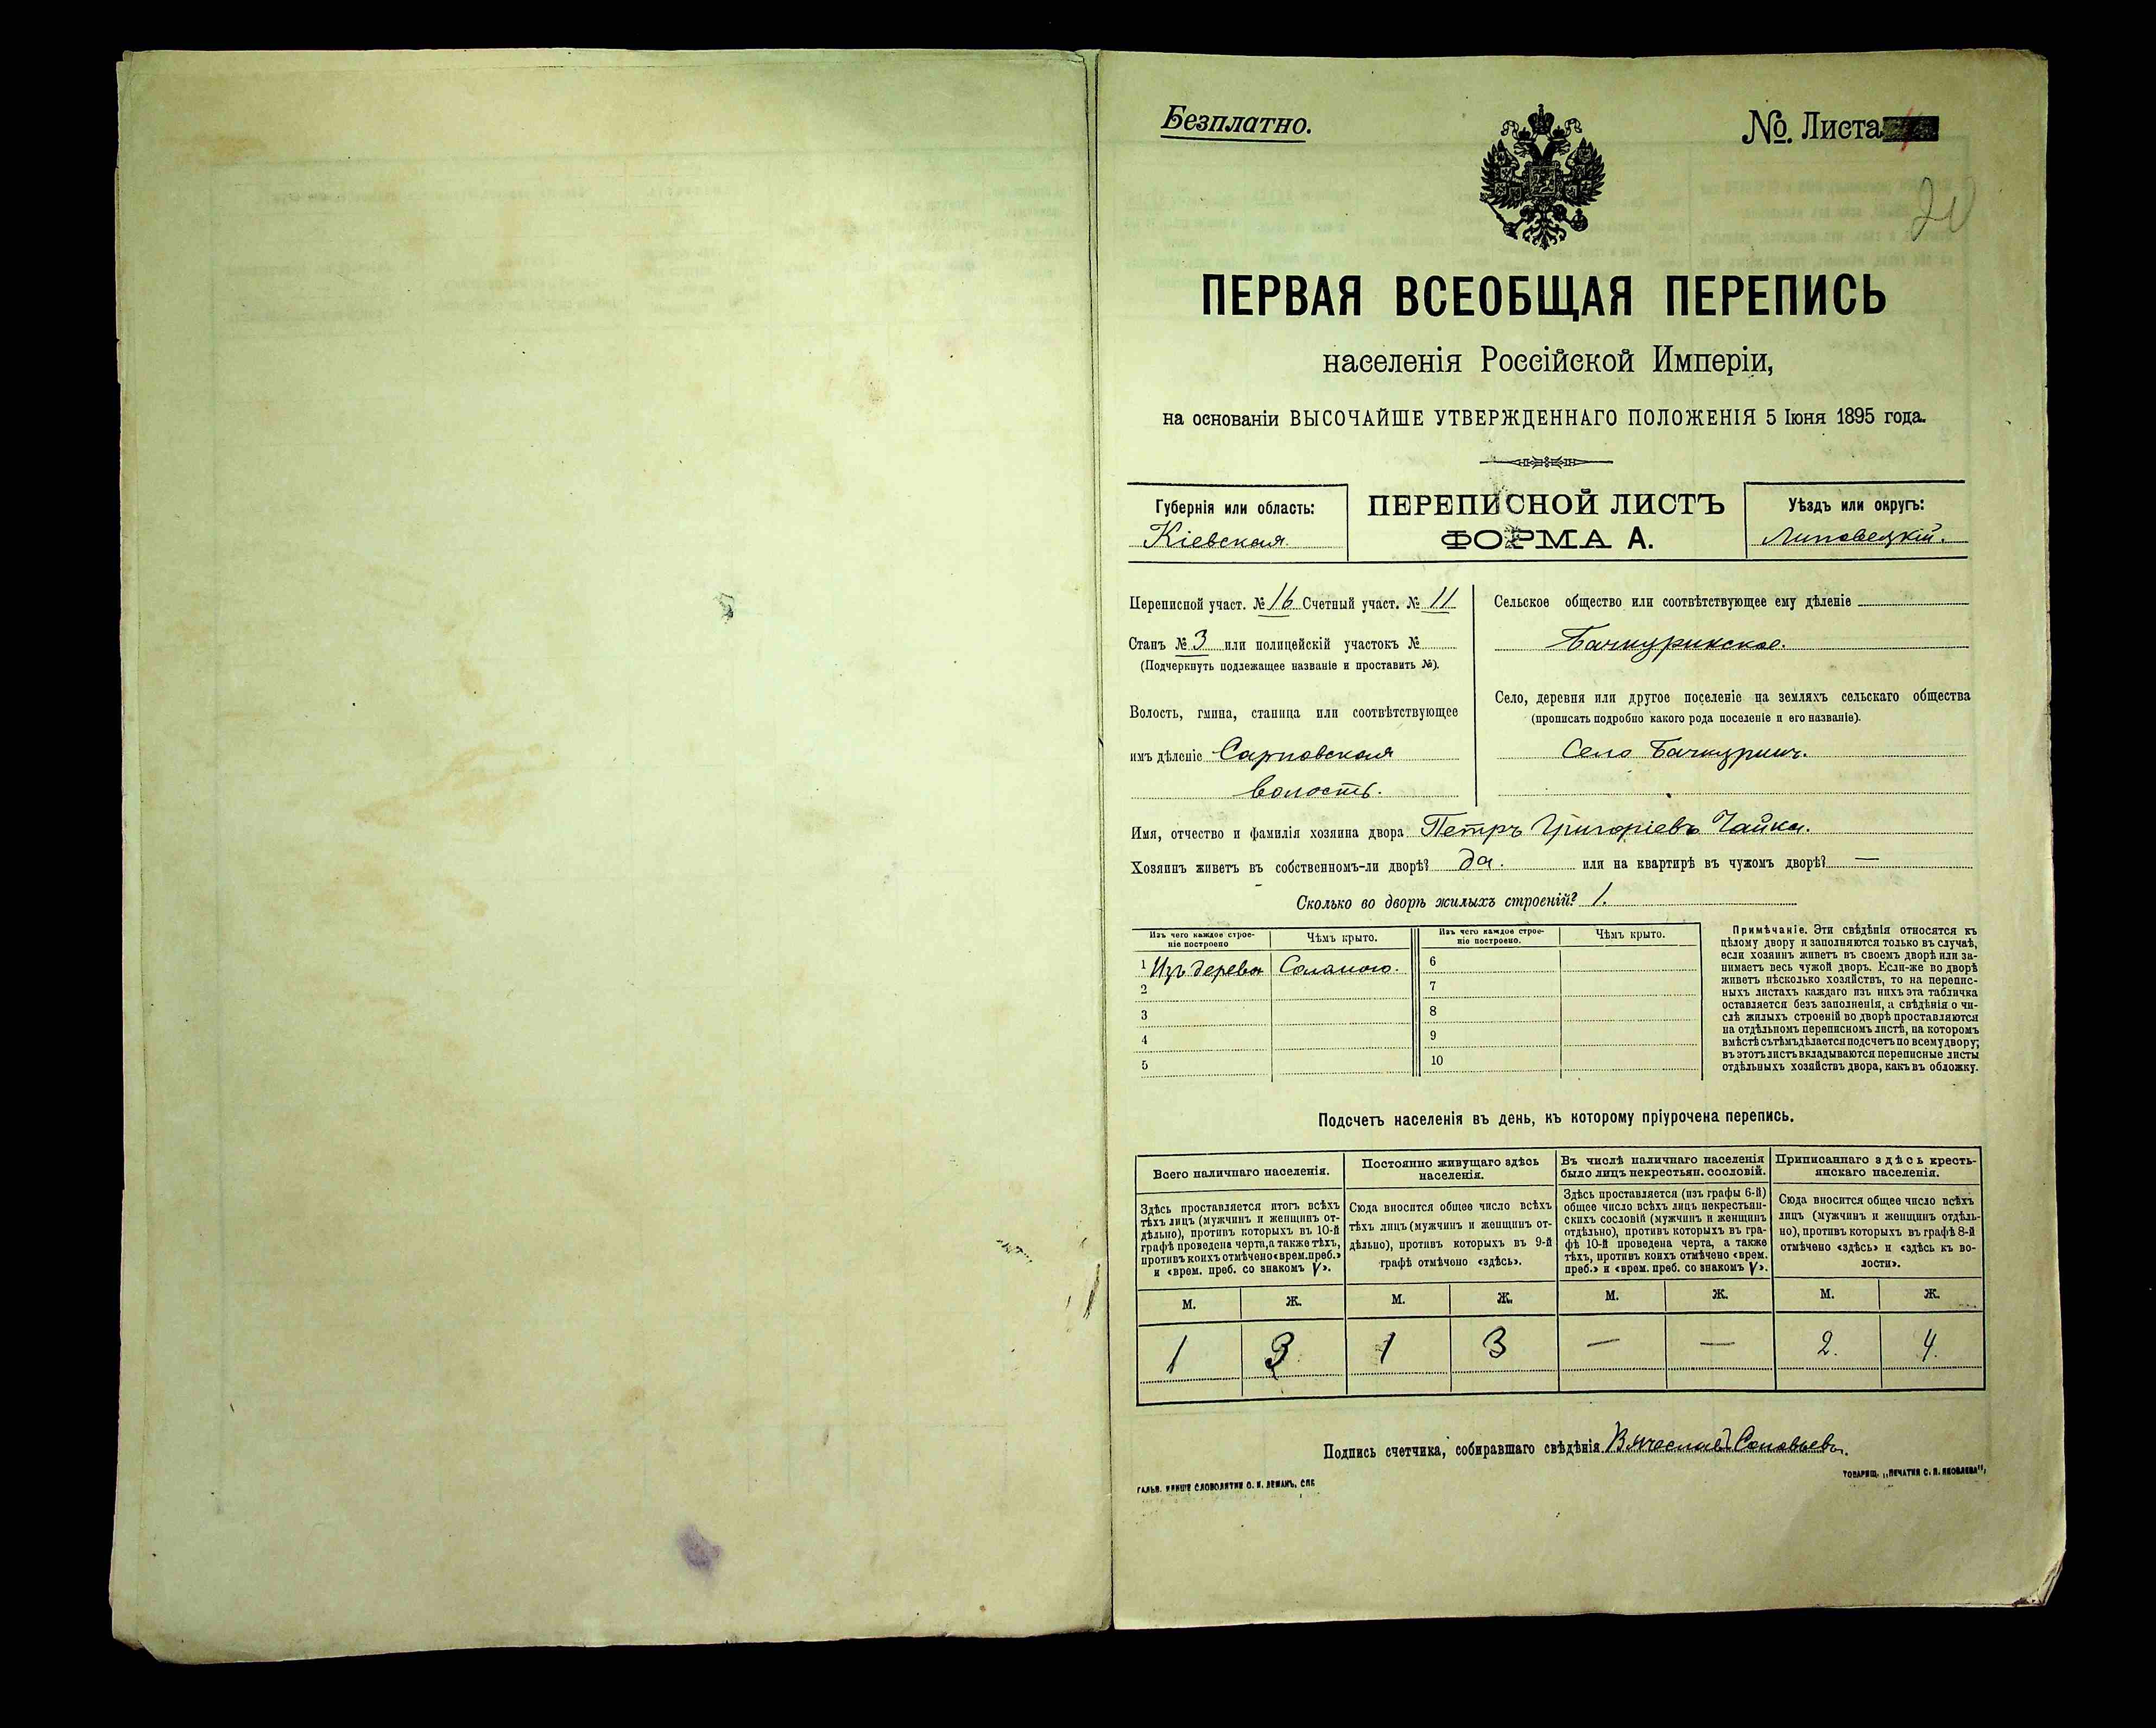 Безплатно.
№ Листа
20
ПЕРВАЯ ВСЕОБЩАЯ ПЕРЕПИСЬ
населенія Россійской Имперіи,
на основаніи ВЫСОЧАЙШЕ УТВЕРЖДЕННАГО ПОЛОЖЕНІЯ 5 Іюня 1895 года.
Губернія или область:
Кіевская.
ПЕРЕПИСНОЙ ЛИСТЪ
ФОРМА А.
Уѣздъ или округъ:
Липовецкій.
Переписной участ. № 16 Счетный участ. № 11
Станъ № 3 или полицейскій участокъ №
(Подчеркнуть подлежащее названіе и проставить №).
Волость, гмина, станица или соотвѣтствующее
имъ дѣленіе Сарновская
волость.
Сельское общество или соотвѣтствующее ему дѣленіе
Бачкуринское.
Село, деревня или другое поселеніе на земляхъ сельскаго общества
(прописать подробно какого рода поселеніе и его названіе).
Село Бачкурин.
Имя, отчество и фамилія хозяина двора Петръ Григоріевъ Чайка.
Хозяинъ живетъ въ собственномъ-ли дворѣ? да. или на квартирѣ въ чужомъ дворѣ? —
Сколько во дворѣ жилыхъ строеній? 1.
Изъ чего каждое строе-
ніе построено
Чѣмъ крыто.
Изъ чего каждое строе-
ніе построено.
Чѣмъ крыто.
1 Изъ дерева Соломою.
2
3
4
5
6
7
8
9
10
Примѣчаніе. Эти свѣдѣнія относятся къ
цѣлому двору и заполняются только въ случаѣ,
если хозяинъ живетъ въ своемъ дворѣ или за-
нимаетъ весь чужой дворъ. Если-же во дворѣ
живетъ нѣсколько хозяйствъ, то на перепис-
ныхъ листахъ каждаго изъ нихъ эта табличка
оставляется безъ заполненія, а свѣдѣнія о чи-
слѣ жилыхъ строеній во дворѣ проставляются
на отдѣльномъ переписномъ листѣ, на которомъ
вмѣстѣ съ тѣмъ дѣлается подсчетъ по всему двору;
въ этотъ листъ вкладываются переписные листы
отдѣльныхъ хозяйствъ двора, какъ въ обложку.
Подсчетъ населенія въ день, къ которому пріурочена перепись.
Всего наличнаго населенія.
Здѣсь проставляется итогъ всѣхъ
тѣхъ лицъ (мужчинъ и женщинъ от-
дѣльно), противъ которыхъ въ 10-й
графѣ проведена черта, а также тѣхъ,
противъ коихъ отмѣчено «врем. преб.»
и «врем. преб. со знакомъ V».
Постоянно живущаго здѣсь
населенія.
Сюда вносится общее число всѣхъ
тѣхъ лицъ (мужчинъ и женщинъ от-
дѣльно), противъ которыхъ въ 9-й
графѣ отмѣчено «здѣсь».
Въ числѣ наличнаго населенія
было лицъ некрестьян. сословій.
Здѣсь проставляется (изъ графы 6-й)
общее число всѣхъ лицъ некрестьян-
скихъ сословій (мужчинъ и женщинъ
отдѣльно), противъ которыхъ въ гра-
фѣ 10-й проведена черта, а также
тѣхъ, противъ коихъ отмѣчено «врем.
преб.» и «врем. преб. со знакомъ V».
Приписаннаго здѣсь кресть-
янскаго населенія.
Сюда вносится общее число всѣхъ
лицъ (мужчинъ и женщинъ отдѣль-
но), противъ которыхъ въ графѣ 8-й
отмѣчено «здѣсь» и «здѣсь къ во-
лости».
М. Ж. М. Ж. М. Ж. М. Ж.
1 3 1 3 — — 2. 4.
Подпись счетчика, собиравшаго свѣдѣнія Вячеславъ Соловьевъ.
ГАЛЬВ. КЛИШЕ СЛОВОЛИТНИ О. И. ЛЕМАНЪ, СПБ
ТОВАРИЩ. „ПЕЧАТНЯ С. П. ЯКОВЛЕВА“,